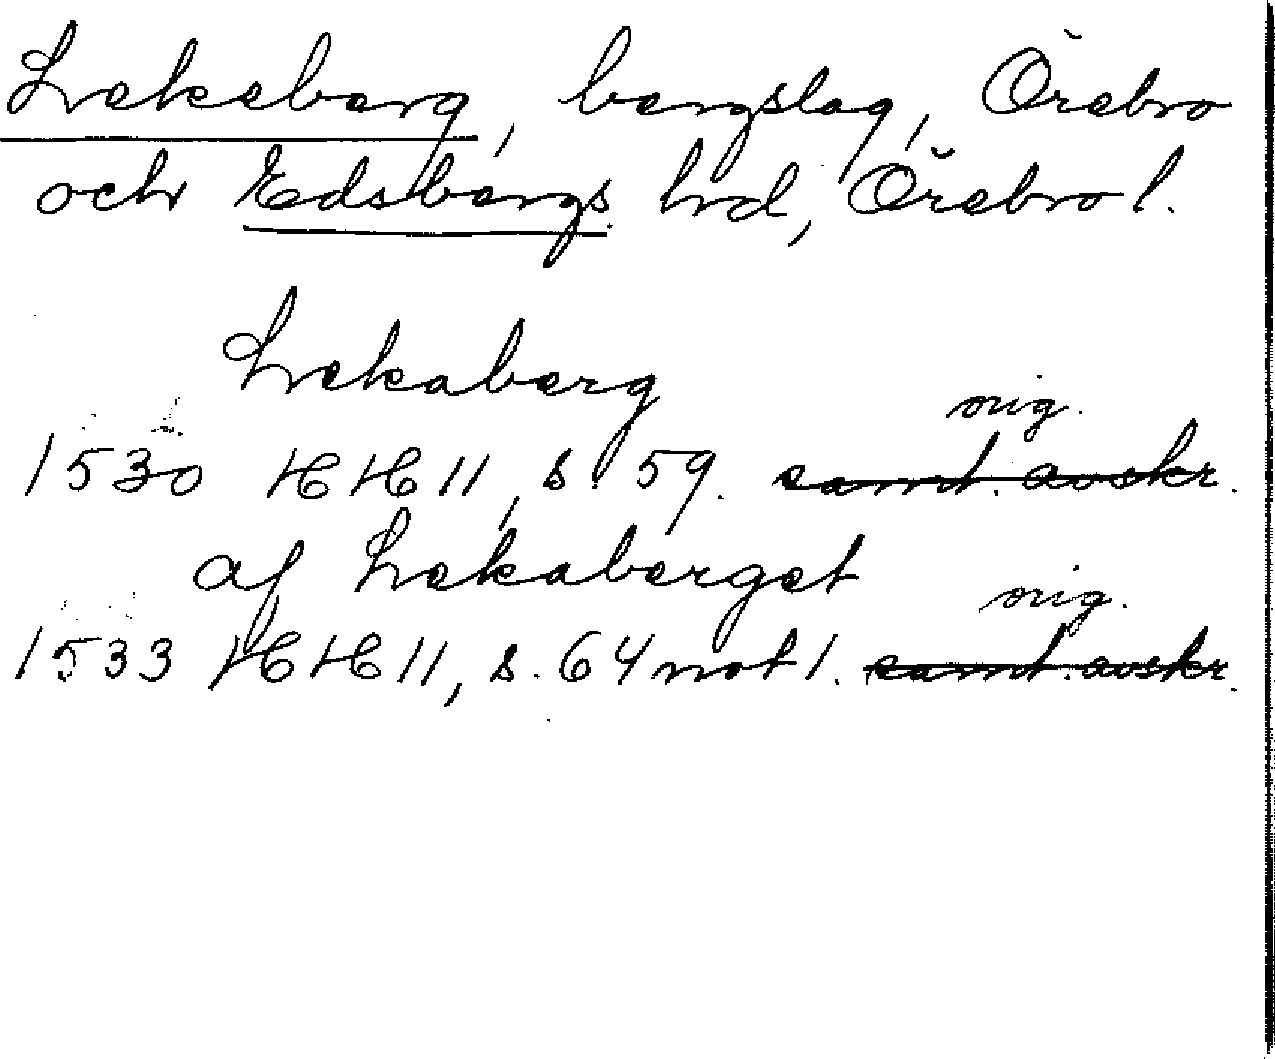 Lekeberg, bergslag, Örebro
och Edsbergs hrd, Örebro l.
Lekaberg
orig.
1530 HH 11, s. 59. samt. avskr.
af Lekaberget
orig.
1533 HH 11, s. 64 not 1. samt. avskr.